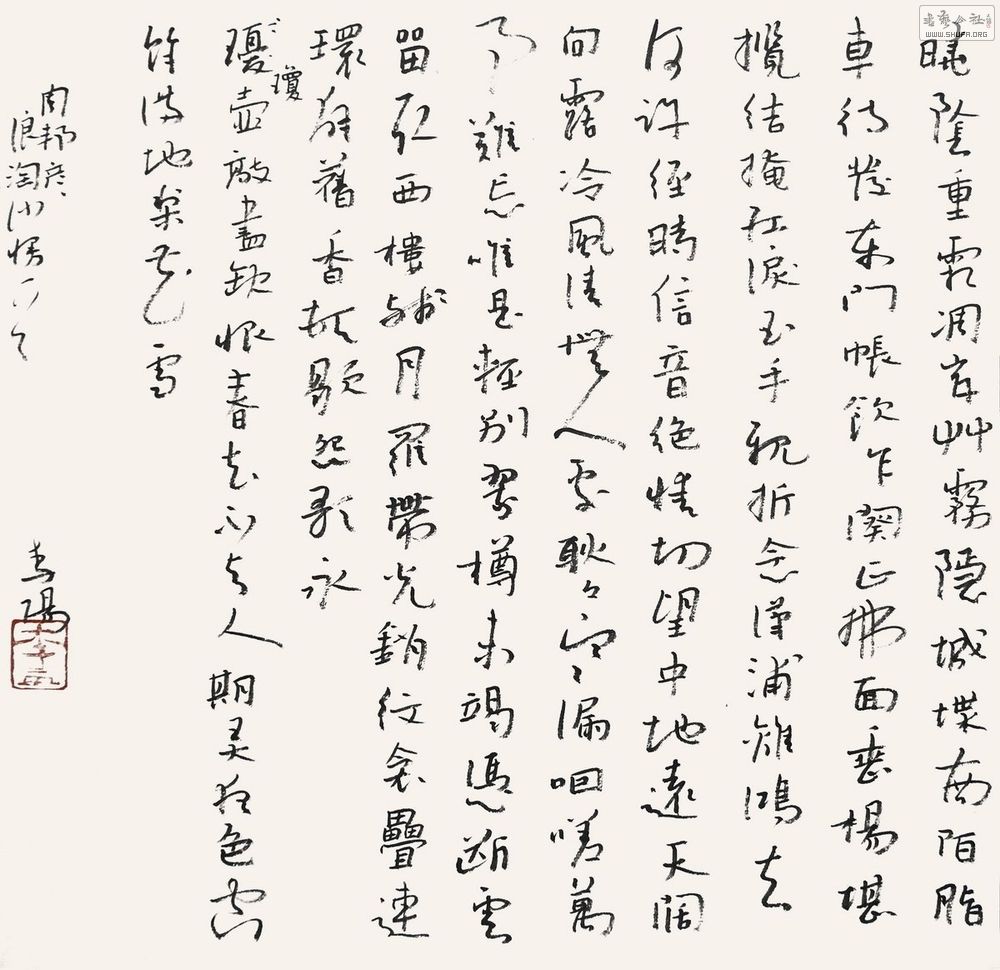 曉陰重霜凋岸艸霧隱城堞南陌脂
車待發東門帳飲乍闋正拂面垂楊堪
攬結掩紅淚玉手親折念漢浦離鴻去
何許經時信音絕情切望中地遠天闊
向露冷風清無人處耿〻寒漏咽嗟萬
事難忘唯是輕別翠樽未竭憑斷雲
留取西樓殘月羅帶光銷紋衾疊連
環解舊香頓歇怨歌永
瓊壺敲盡缺恨春去不与人期弄夜色空
瓊
餘滿地梨花雪
周邦彥
浪淘沙慢
WWW.SHUFA.ORG